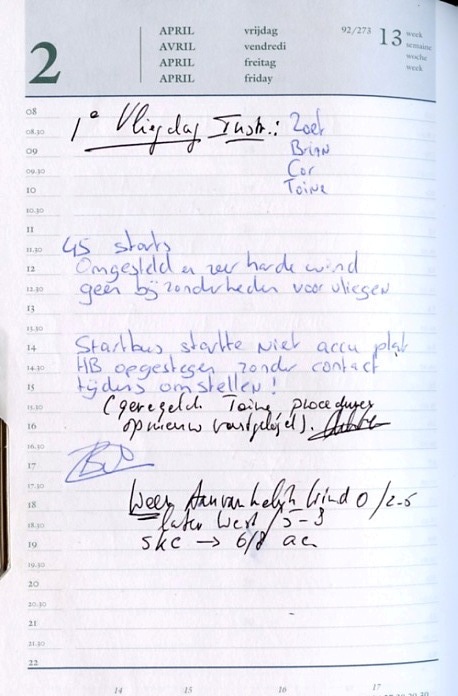 2
APRIL vrijdag 92/273 13 week
AVRIL vendredi semaine
APRIL freitag woche
APRIL friday week
08
08.30 1e Vliegdag Instr.: Zoef
09 Brian
09.30 Cor
10 Toine
10.30
11
11.30 45 starts
12 Omgesteld en zeer harde wind
12.30 geen bijzonderheden voor vliegen
13
13.30
14 Startbus startte niet accu plat
14.30 HB opgestegen zonder contact
15 tijdens omstellen!
15.30 (geregeld Toine, procedures
16 opnieuw vastgelegd).
16.30
17
17.30
18 Weer Aanvankelijk Wind O/2-5
18.30 later West/5-3
19 skc → 6/8 ac
19.30
20
20.30
21
21.30
22
14 15 16 17